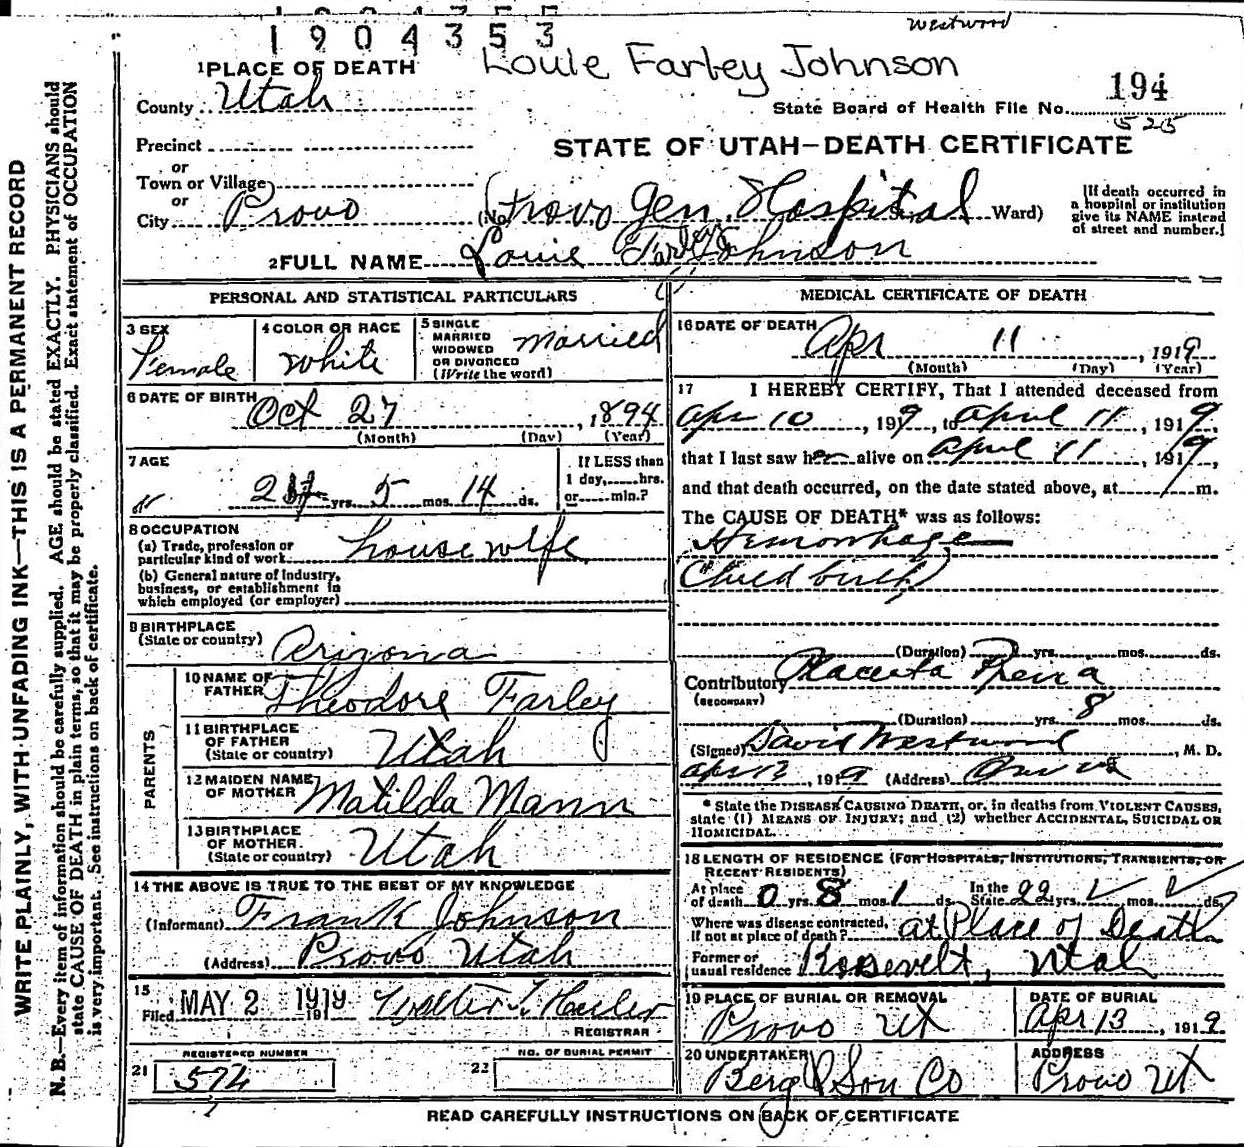 Westwood
1904353
Louie Farley Johnson
1 PLACE OF DEATH
County Utah
State Board of Health File No. 194
525
Precinct
STATE OF UTAH—DEATH CERTIFICATE
or
Town or Village
or
City Provo (No. Provo Gen. Hospital St. Ward)
[If death occurred in
a hospital or institution
give its NAME instead
of street and number.]
2 FULL NAME Louie Farley Johnson
PERSONAL AND STATISTICAL PARTICULARS
3 SEX
Female
4 COLOR OR RACE
White
5 SINGLE
MARRIED
WIDOWED
OR DIVORCED
(Write the word)
Married
6 DATE OF BIRTH
Oct 27, 1894
(Month) (Day) (Year)
7 AGE
yrs. 5 mos. 14 ds.
If LESS than
1 day, hrs.
or min.?
8 OCCUPATION
(a) Trade, profession or
particular kind of work housewife
(b) General nature of Industry,
business, or establishment in
which employed (or employer)
9 BIRTHPLACE
(State or country) Arizona
PARENTS
10 NAME OF
FATHER Theodore Farley
11 BIRTHPLACE
OF FATHER
(State or country) Utah
12 MAIDEN NAME
OF MOTHER Matilda Mann
13 BIRTHPLACE
OF MOTHER.
(State or country) Utah
14 THE ABOVE IS TRUE TO THE BEST OF MY KNOWLEDGE
(Informant) Frank Johnson
(Address) Provo Utah
15
Filed MAY 2 1919 1917 Walter T. Hasler
REGISTRAR
REGISTERED NUMBER
21 574
NO. OF BURIAL PERMIT
22
MEDICAL CERTIFICATE OF DEATH
16 DATE OF DEATH
Apr 11, 1919
(Month) (Day) (Year)
17 I HEREBY CERTIFY, That I attended deceased from
Apr 10, 1919, to April 11, 1919
that I last saw her alive on April 11, 1919,
and that death occurred, on the date stated above, at m.
The CAUSE OF DEATH* was as follows:
Hemorrhage
Child birth
(Duration) yrs. mos. ds.
Contributory Placenta Previa
(SECONDARY)
(Duration) yrs. 8 mos. ds.
(Signed) David Westwood, M. D.
Apr 12, 1919 (Address) Provo
* State the DISEASE CAUSING DEATH, or, in deaths from VIOLENT CAUSES,
state (1) MEANS OF INJURY; and (2) whether ACCIDENTAL, SUICIDAL OR
HOMICIDAL.
18 LENGTH OF RESIDENCE (FOR HOSPITALS, INSTITUTIONS, TRANSIENTS, OR
RECENT RESIDENTS)
At place
of death 0 yrs. 8 mos. 1 ds. In the
State 22 yrs. mos. ds.
Where was disease contracted,
if not at place of death? at Place of Death
Former or
usual residence Roosevelt, Utah
19 PLACE OF BURIAL OR REMOVAL
Provo Ut
DATE OF BURIAL
Apr 13, 1919
20 UNDERTAKER
Berg & Son Co
ADDRESS
Provo Ut
READ CAREFULLY INSTRUCTIONS ON BACK OF CERTIFICATE
WRITE PLAINLY, WITH UNFADING INK—THIS IS A PERMANENT RECORD
N. B.—Every item of information should be carefully supplied. AGE should be stated EXACTLY. PHYSICIANS should
state CAUSE OF DEATH in plain terms, so that it may be properly classified. Exact statement of OCCUPATION
is very important. See instructions on back of certificate.